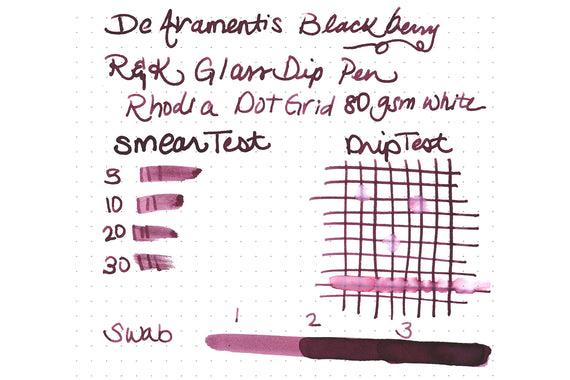 De Aramentis Blackberry
R&K Glass Dip Pen
Rhodia Dot Grid 80gsm white
Smear Test
Drip Test
5
10
20
30
Swab
1 2 3